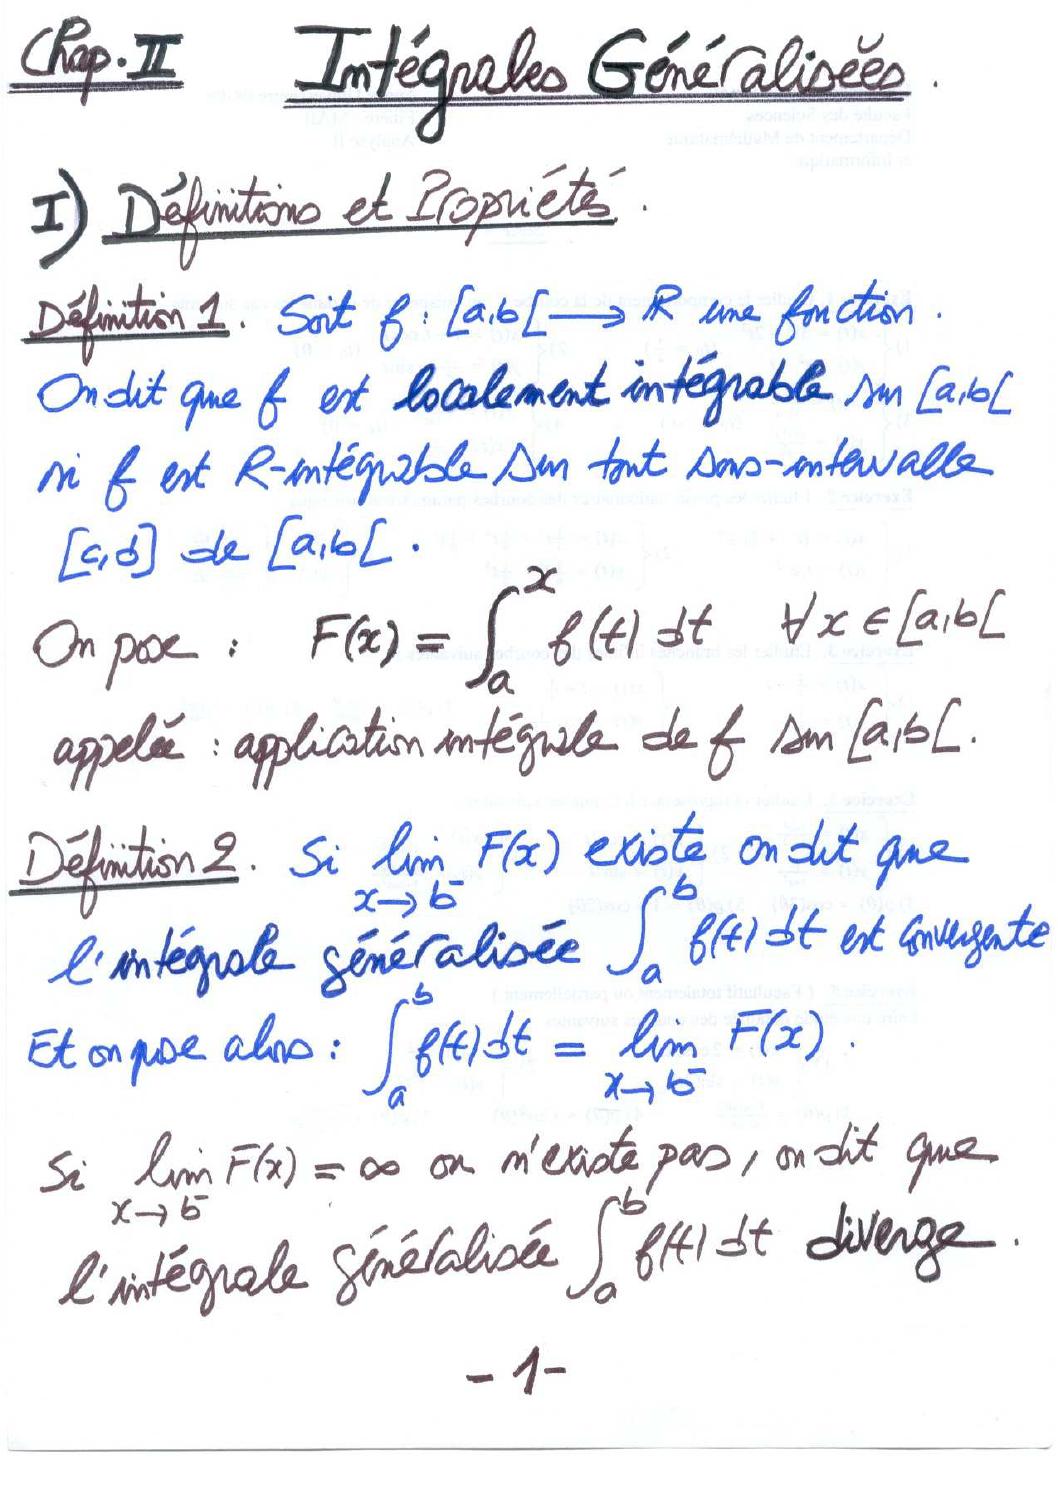 Chap. II Intégrales Généralisées.
I) Définitions et Propriétés.
Définition 1. Soit f : [a,b[ → ℝ une fonction.
On dit que f est localement intégrable sur [a,b[
si f est R-intégrable sur tout sous-intervalle
[c,d] de [a,b[.
On pose : F(x) = ∫_a^x f(t) dt ∀ x ∈ [a,b[
appelée : application intégrale de f sur [a,b[.
Définition 2. Si lim_{x→b⁻} F(x) existe on dit que
l'intégrale généralisée ∫_a^b f(t) dt est convergente
Et on pose alors : ∫_a^b f(t) dt = lim_{x→b⁻} F(x).
Si lim_{x→b⁻} F(x) = ∞ ou n'existe pas, on dit que
l'intégrale généralisée ∫_a^b f(t) dt diverge.
- 1 -